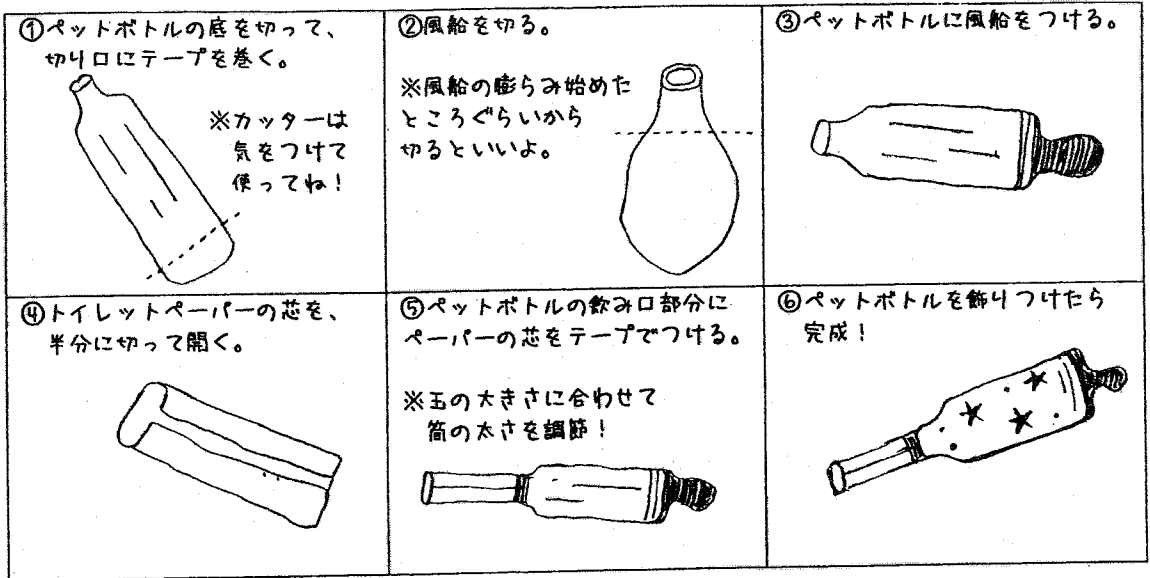 ①ペットボトルの底を切って、
切り口にテープを巻く。
※カッターは
気をつけて
使ってね！
②風船を切る。
※風船の膨らみ始めた
ところぐらいから
切るといいよ。
③ペットボトルに風船をつける。
④トイレットペーパーの芯を、
半分に切って開く。
⑤ペットボトルの飲み口部分に
ペーパーの芯をテープでつける。
※玉の大きさに合わせて
筒の太さを調節！
⑥ペットボトルを飾りつけたら
完成！